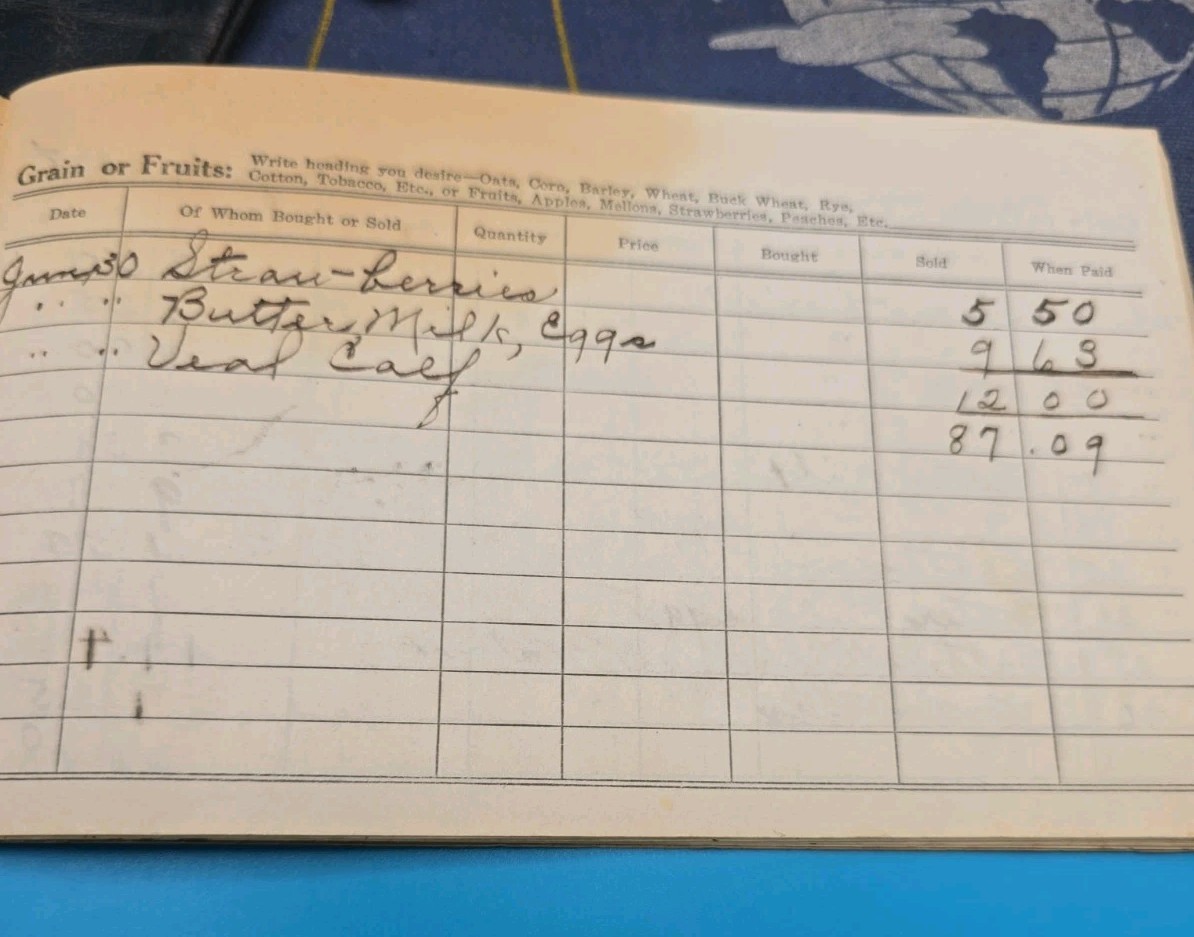 Grain or Fruits: Write heading you desire—Oats, Corn, Barley, Wheat, Buck Wheat, Rye,
Cotton, Tobacco, Etc., or Fruits, Apples, Mellons, Strawberries, Peaches, Etc.
Date Of Whom Bought or Sold Quantity Price Bought Sold When Paid
June 30 Straw-berries 5 50
" " Butter, Milk, Eggs 9 63
" " Veal Calf 12 00
87.09